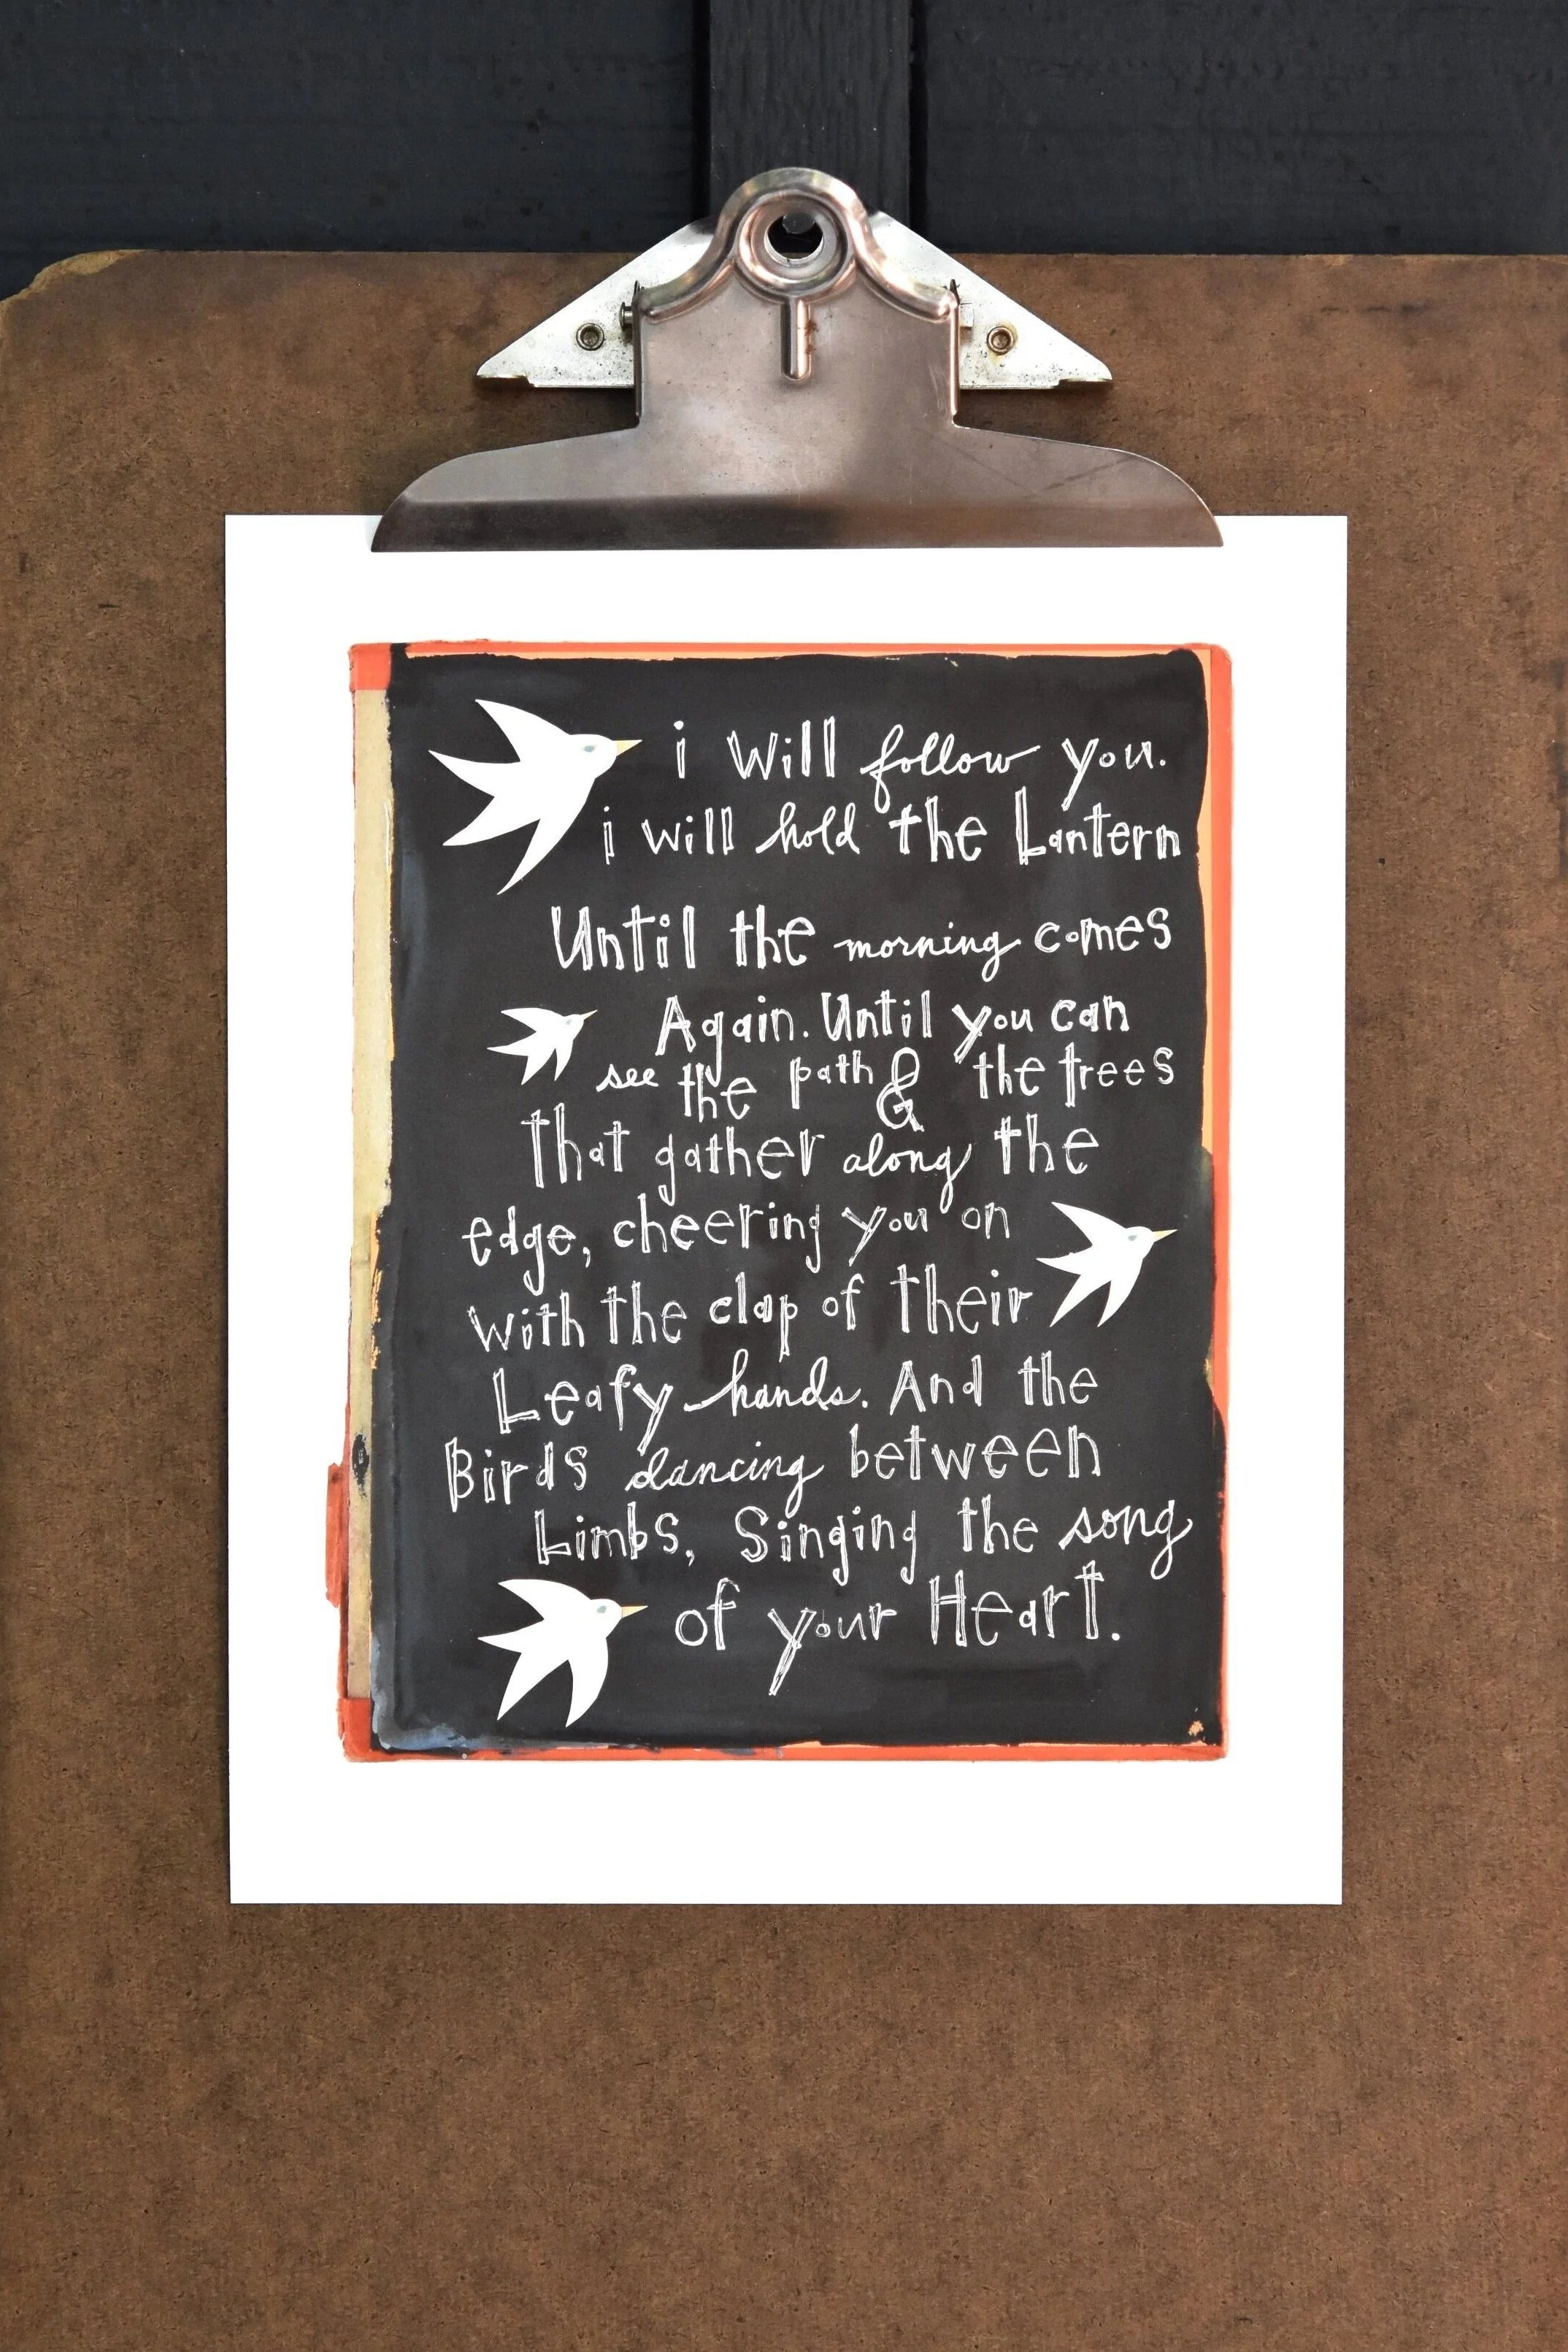 i will follow you.
i will hold the Lantern
Until the morning comes
Again. Until you can
see the path & the trees
that gather along the
edge, cheering you on
with the clap of their
Leafy hands. And the
Birds dancing between
Limbs, Singing the song
of your Heart.